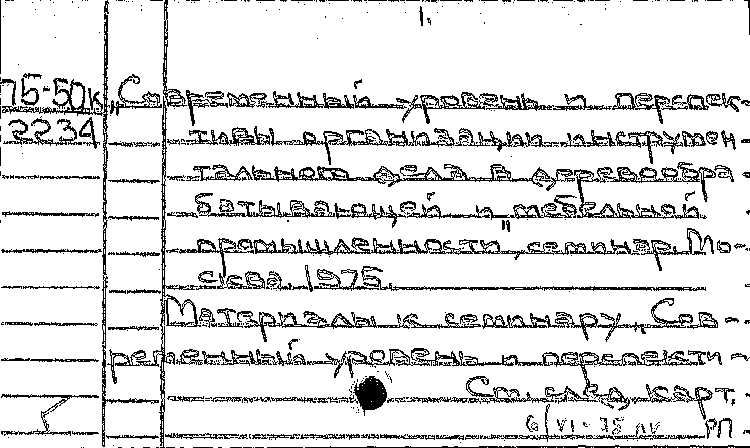 1.
П5-50к „Современный уровень и перспек-
2234 тивы организации инструмен-
тального дела в деревообра-
батывающей и мебельной
промышленности", семинар. Мо-
сква. 1975.
Материалы к семинару „Сов-
ременный уровень и перспекти-
См. след. карт.
6/VI-75 РП